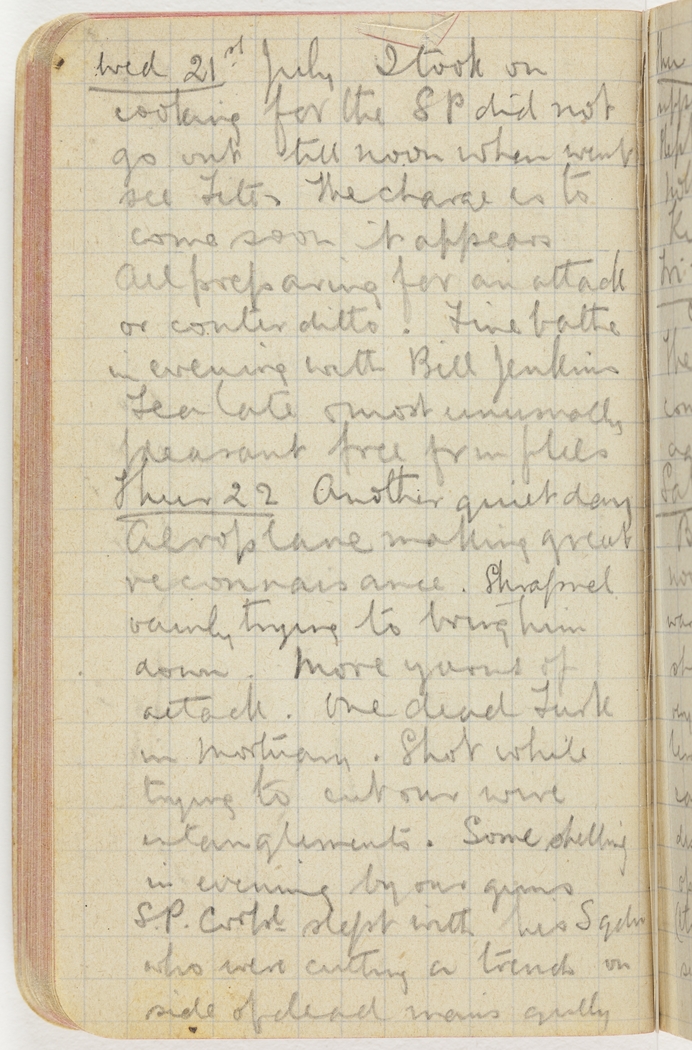 Wed 21st July I took on
cooking for the SP did not
go out till noon when went
see The charge is to
come soon it appears
All preparing for an attack
or conter ditto. Fine bathe
in evening with Bill Jenkins
Tea late & most unusually
pleasant free frm flies
Thur 22 Another quiet day
Aeroplane making great
reconnaisance. Shrapnel
vainly trying to bring him
down. More yarns of
attack. One dead Turk
in Mortuary. Shot while
trying to cut our wire
entanglements. Some shelling
in evening by our guns
S.P. Corpl slept with his Sqdn
who were cutting a trench on
side of dead mans gully